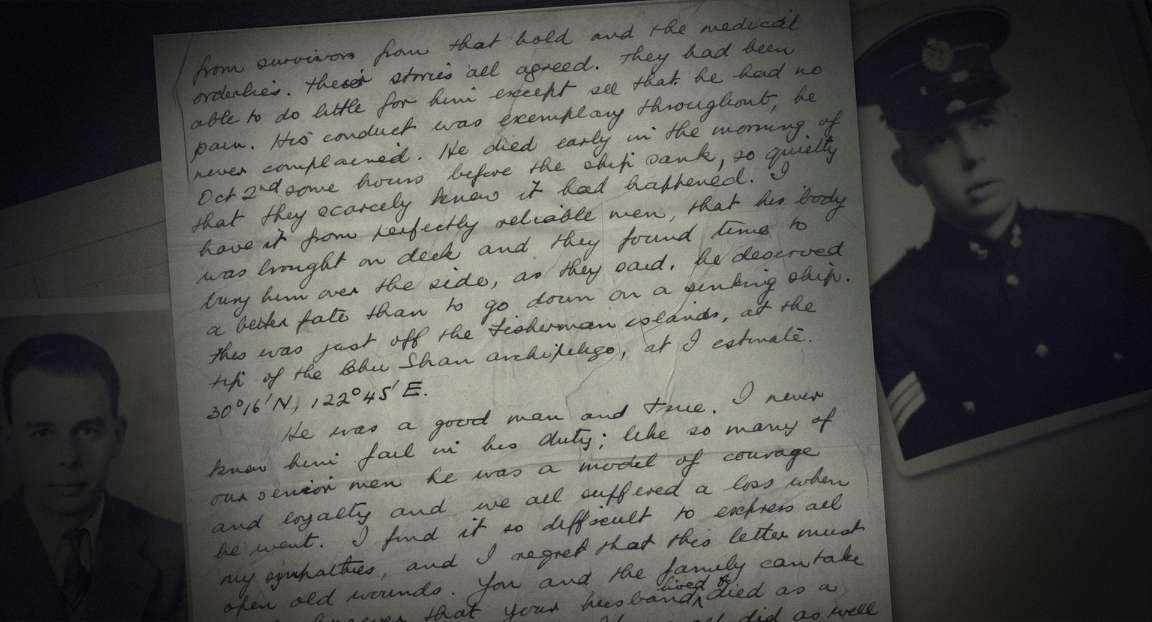 from survivors from that hold and the medical
orderlies. Their stories all agreed. They had been
able to do little for him except see that he had no
pain. His conduct was exemplary throughout, he
never complained. He died early in the morning of
Oct 2nd some hours before the ship sank, so quietly
that they scarcely knew it had happened. I
have it from perfectly reliable men, that his body
was brought on deck and they found time to
bury him over the side, as they said, he deserved
a better fate than to go down on a sinking ship.
This was just off the Fisherman islands, at the
tip of the Chu Shan archipeligo, at I estimate.
30°16'N, 122°45'E.
He was a good man and true. I never
knew him fail in his duty; like so many of
our senior men he was a model of courage
and loyalty and we all suffered a loss when
he went. I find it so difficult to express all
my sympathies, and I regret that this letter must
open old wounds. You and the family can take
that your husband lived & died as a
did as well